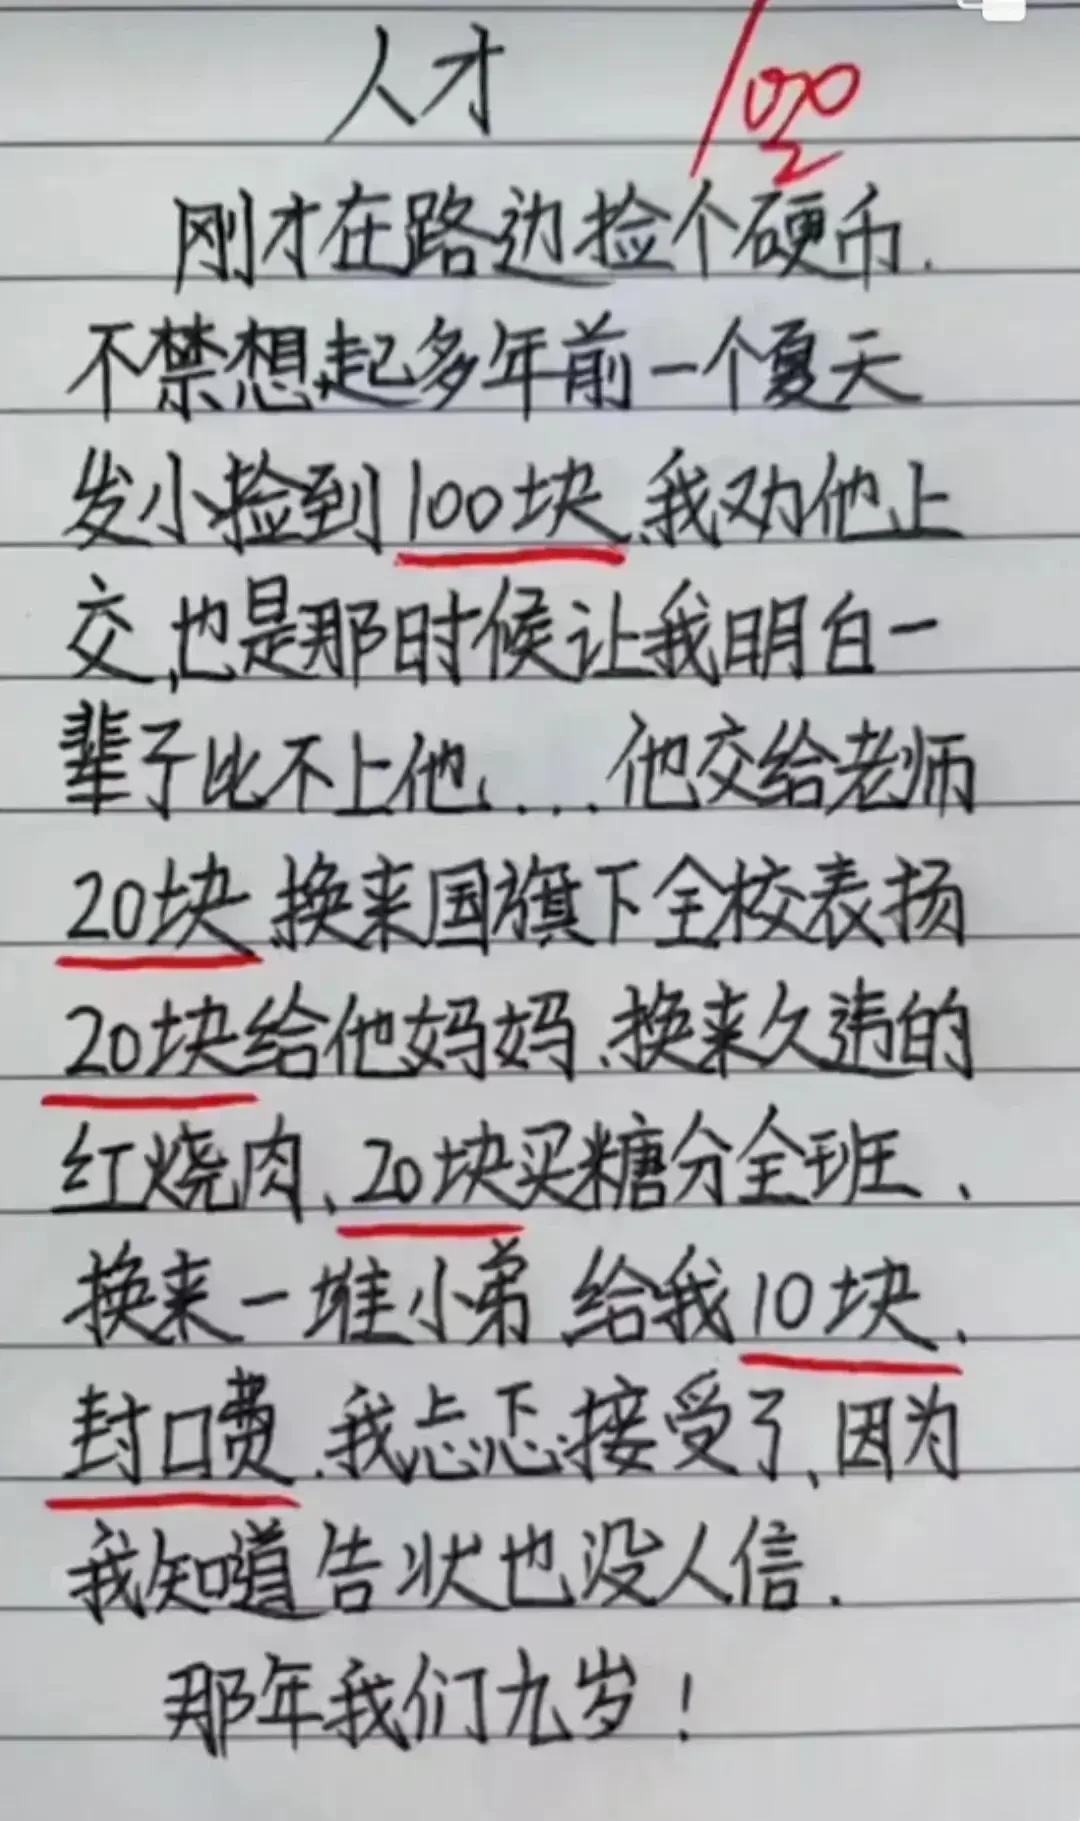 人才
100
刚才在路边捡个硬币.
不禁想起多年前一个夏天
发小捡到100块、我劝他上
交,也是那时候让我明白一
辈子比不上他....他交给老师
20块、换来国旗下全校表扬
20块给他妈妈、换来久违的
红烧肉、20块买糖分全班、
换来一堆小弟、给我10块、
封口费、我忐忑接受了、因为
我知道告状也没人信.
那年我们九岁!